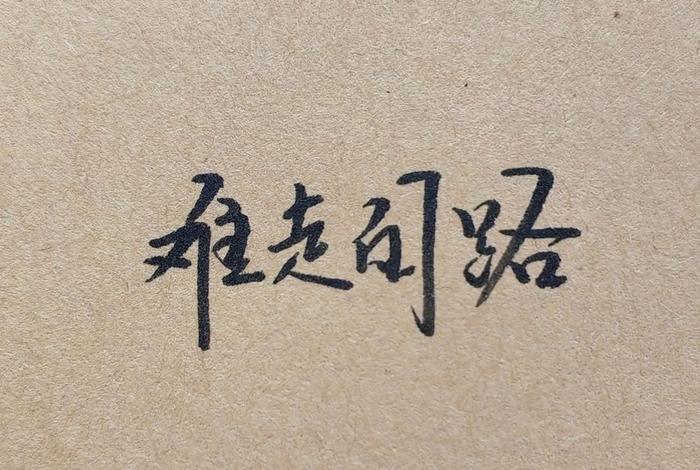 难走的路